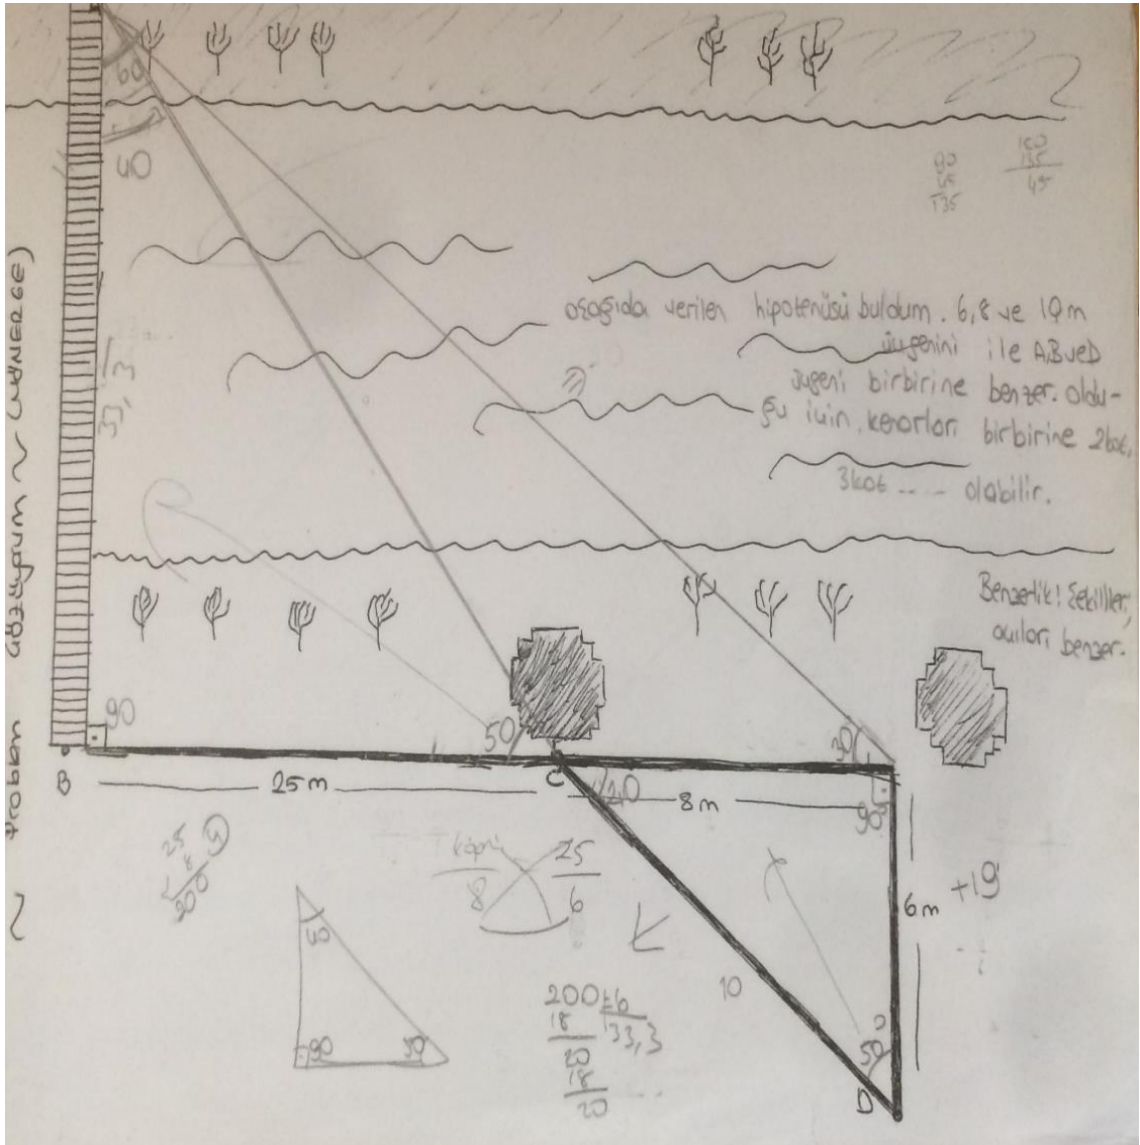 60
40
90
45
135
180
135
45
aşağıda verilen hipotenüsü buldum. 6,8 ve 10 m
üçgenini ile A,B ve D
üçgeni birbirine benzer. oldu-
ğu için, kenarları birbirine 2 kat,
3 kat .... olabilir.
33,3
Benzerlik! Şekiller,
açıları benzer.
90
50
30
B
25 m
C
8 m
90
6 m
+19
25
8
200
köprü
25
8
6
10
50
D
90
200 6
18 33,3
20
18
20